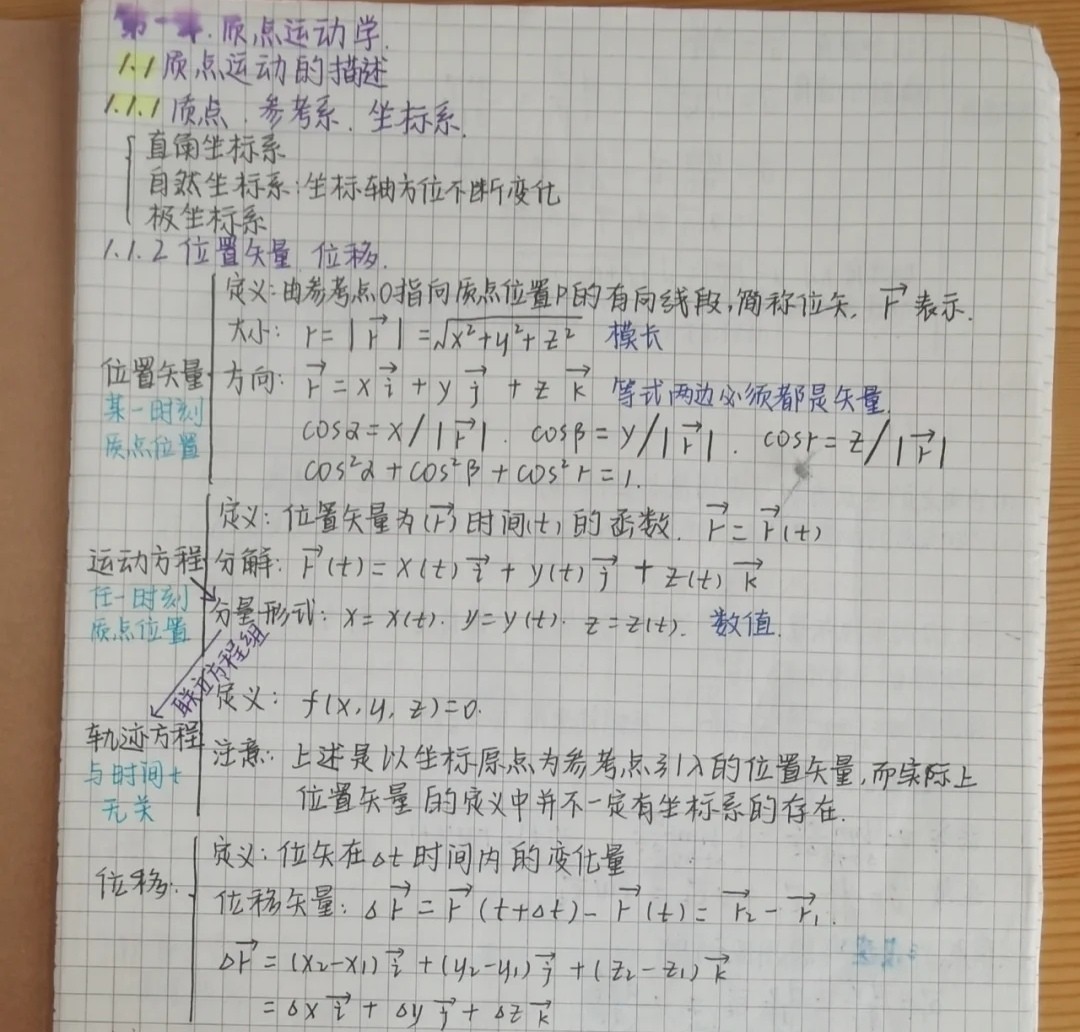 第一章.质点运动学.
1.1 质点运动的描述
1.1.1 质点.参考系.坐标系.
直角坐标系
自然坐标系:坐标轴方位不断变化
极坐标系
1.1.2 位置矢量 位移.
定义:由参考点O指向质点位置P的有向线段,简称位矢. r⃗ 表示.
大小: r=|r⃗|=√x²+y²+z² 模长
位置矢量 方向: r⃗=x i⃗+y j⃗+z k⃗ 等式两边必须都是矢量.
某一时刻
质点位置
cosα=x/|r⃗|. cosβ=y/|r⃗|. cosr=z/|r⃗|
cos²α+cos²β+cos²r=1.
定义:位置矢量为(r⃗)时间(t)的函数. r⃗=r⃗(t)
运动方程 分解: r⃗(t)=x(t) i⃗+y(t) j⃗+z(t) k⃗
任一时刻
质点位置
分量形式: x=x(t). y=y(t). z=z(t). 数值.
联立方程组
定义: f(x,y,z)=0.
轨迹方程
与时间t
无关
注意: 上述是以坐标原点为参考点引入的位置矢量,而实际上
位置矢量的定义中并不一定有坐标系的存在.
定义:位矢在Δt时间内的变化量
位移. 位移矢量: Δr⃗=r⃗(t+Δt)-r⃗(t)=r⃗₂-r⃗₁.
Δr⃗=(x₂-x₁) i⃗+(y₂-y₁) j⃗+(z₂-z₁) k⃗
=Δx i⃗+Δy j⃗+Δz k⃗